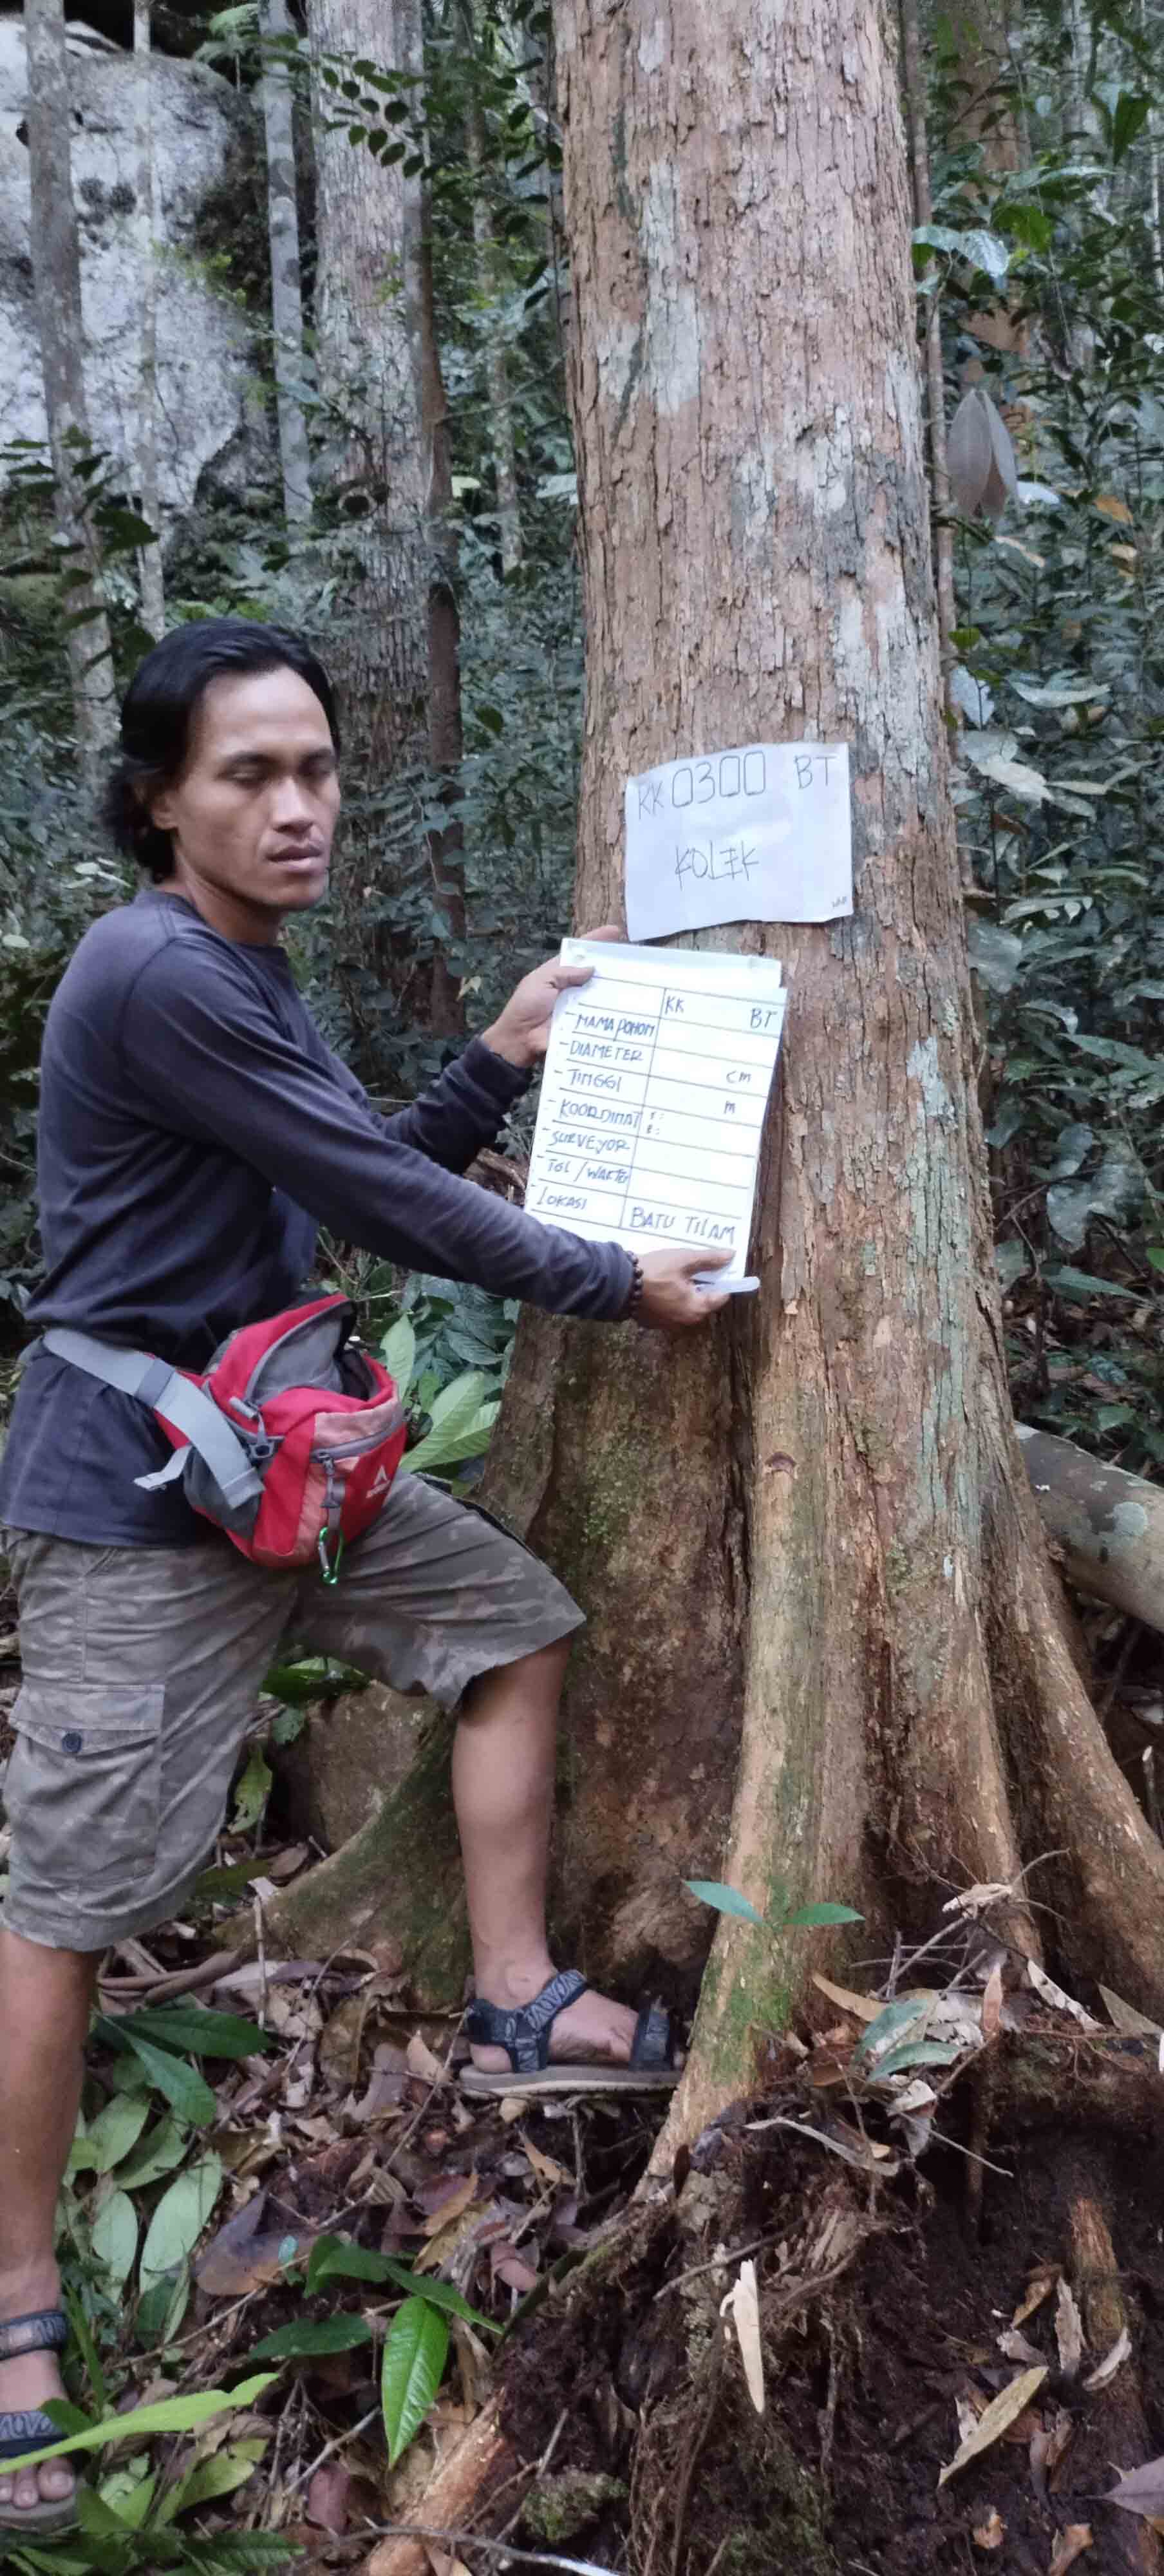 KK 0300 BT
KOLEK
KK BT
- NAMA POHON
- DIAMETER cm
- TINGGI m
- KOORDINAT S:
E:
- SURVEYOR
- TGL/WAKTU
- LOKASI BATU TILAM